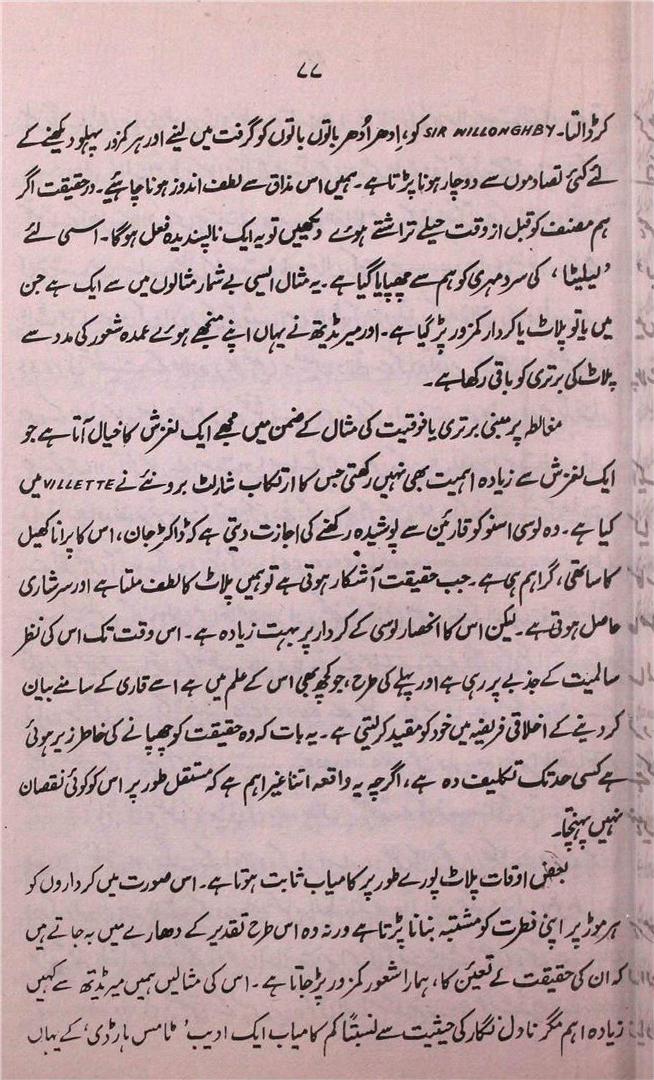 ۷۷
کر ڈالتا۔ SIR WILLONGHBY کو، اِدھر اُدھر باتوں باتوں کو گرفت میں لینے اور ہر کمزور پہلو دیکھنے کے
لئے کئی تصادموں سے دوچار ہونا پڑتا ہے۔ ہمیں اس مذاق سے لطف اندوز ہونا چاہئیے۔ درحقیقت اگر
ہم مصنف کو قبل از وقت حیلے تراشتے ہوئے دیکھیں تو یہ ایک ناپسندیدہ فعل ہوگا۔ اسی لئے
’لیلیٹا‘ کی سرد مہری کو ہم سے چھپایا گیا ہے۔ یہ مثال ایسی بے شمار مثالوں میں سے ایک ہے جن
میں یا تو پلاٹ یا کردار کمزور پڑ گیا ہے۔ اور میریڈیتھ نے یہاں اپنے منجھے ہوئے عمدہ شعور کی مدد سے
پلاٹ کی برتری کو باقی رکھا ہے۔
مغالطہ پر مبنی برتری یا فوقیت کی مثال کے ضمن میں مجھے ایک لغزش کا خیال آتا ہے جو
ایک لغزش سے زیادہ اہمیت بھی نہیں رکھتی جس کا ارتکاب شارلٹ برونٹے نے VILLETTE میں
کیا ہے۔ وہ لوسی اسنو کو قارئین سے پوشیدہ رکھنے کی اجازت دیتی ہے کہ ڈاکٹر جان، اس کا پرانا کھیل
کا ساتھی، گراہم ہی ہے۔ جب حقیقت آشکار ہوتی ہے تو ہمیں پلاٹ کا لطف ملتا ہے اور سرشاری
حاصل ہوتی ہے۔ لیکن اس کا انحصار لوسی کے کردار پر بہت زیادہ ہے۔ اس وقت تک اس کی نظر
سالمیت کے جذبے پر رہی ہے اور پہلے کی طرح، جو کچھ بھی اس کے علم میں ہے اسے قاری کے سامنے بیان
کر دینے کے اخلاقی فریضہ میں خود کو مقید کر لیتی ہے۔ یہ بات کہ وہ حقیقت کو چھپانے کی خاطر زیر ہوئی
ہے کسی حد تک تکلیف دہ ہے، اگرچہ یہ واقعہ اتنا غیر اہم ہے کہ مستقل طور پر اس کو کوئی نقصان
نہیں پہنچتا۔
بعض اوقات پلاٹ پورے طور پر کامیاب ثابت ہوتا ہے۔ اس صورت میں کرداروں کو
ہر موڑ پر اپنی فطرت کو مشتبہ بنانا پڑتا ہے ورنہ وہ اس طرح تقدیر کے دھارے میں بہ جاتے ہیں
کہ ان کی حقیقت کے تعیّن کا، ہمارا شعور کمزور پڑ جاتا ہے۔ اس کی مثالیں ہمیں میریڈیتھ سے کہیں
زیادہ اہم مگر ناول نگار کی حیثیت سے نسبتًا کم کامیاب ایک ادیب ’ٹامس ہارڈی‘ کے یہاں